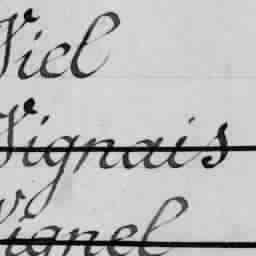 Viel
Vignais
Vignel